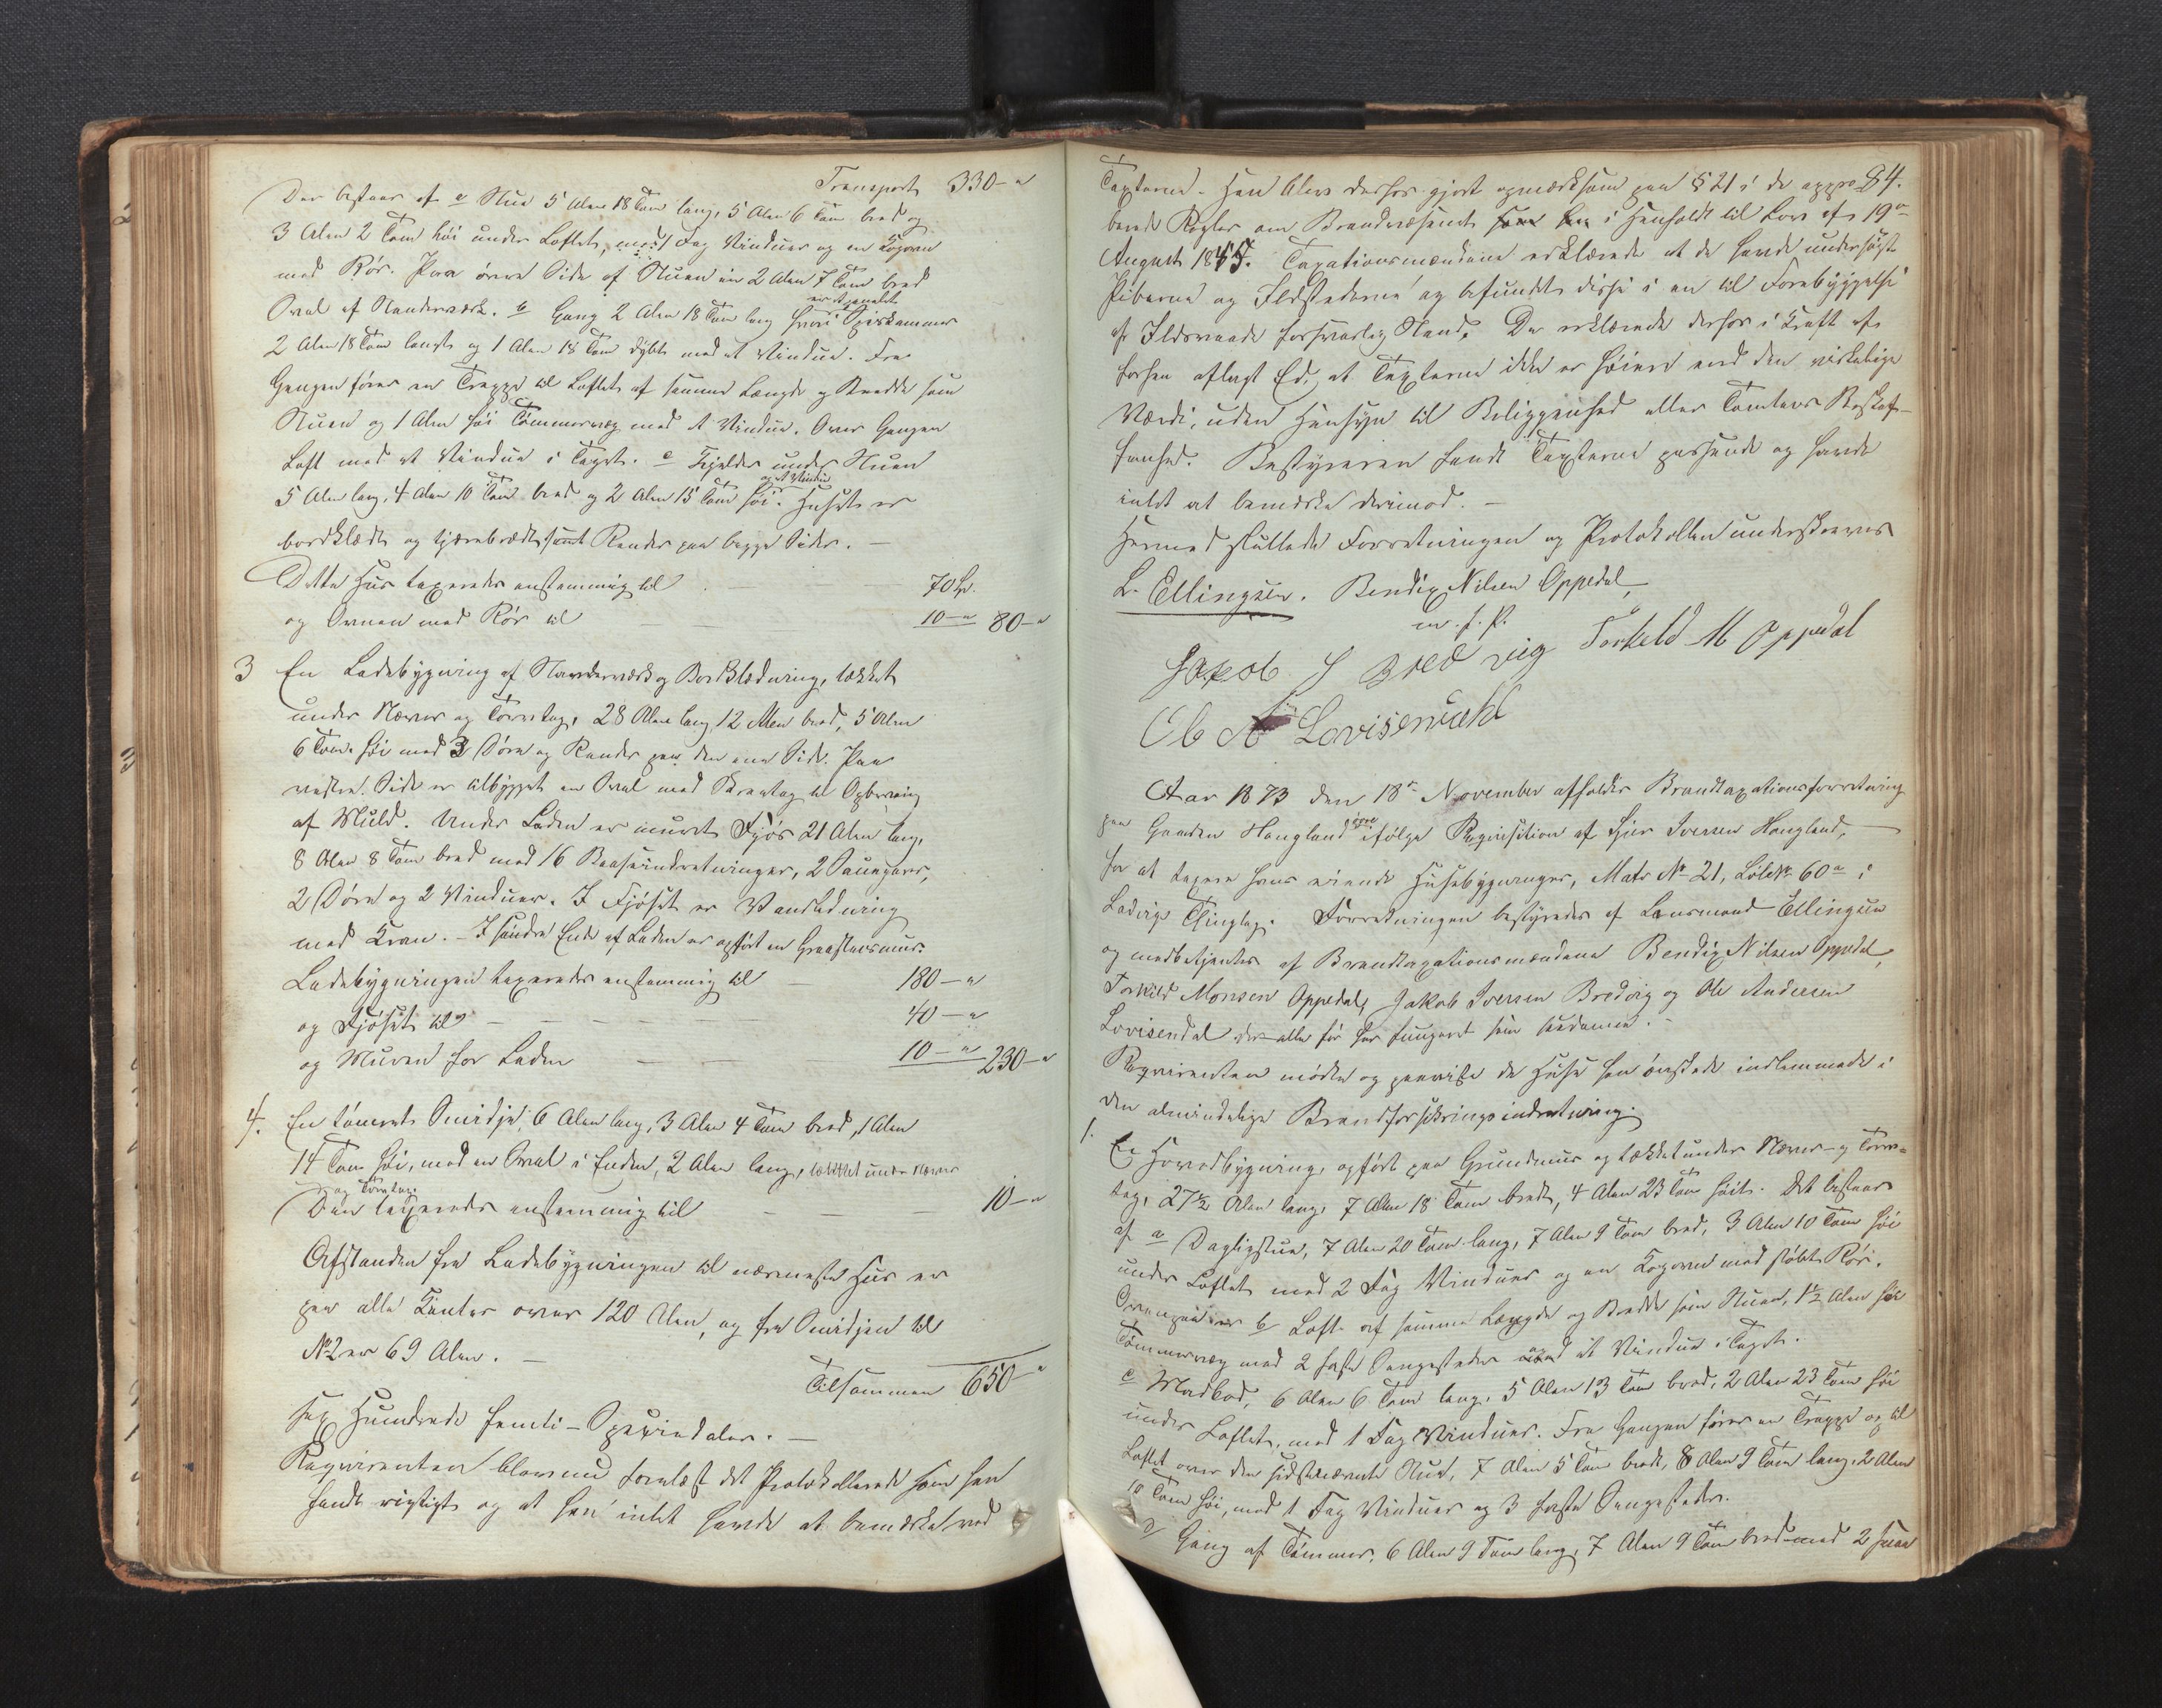 Transport 330 - "
Der bestaar af a Stue 5 Alen 18 Tom lang, 5 Alen 6 Tom bred og
3 Alen 2 Tom høi under Loftet, med 1 Fag Vinduer og en Kogovn
med Rør. Paa øvre Side af Stuen en 2 Alen 7 Tom bred
Sval af Standerværk. b Gang 2 Alen 18 Tom lang hvori er afpanelet Spiskammer
2 Alen 18 Tom langt og 1 Alen 18 Tom dybt med et Vindue. Fra
Gangen fører en Trappe til Loftet af samme Længde og Bredde som
Stuen og 1 Alen høi Tømmervæg med et Vindue. Over Gangen
Loft med et Vindue i Taget. c Kjelder under Stuen
5 Alen lang, 4 Alen 10 Tom bred og 2 Alen 15 Tom høi og et Vindue. Huset er
bordklædt og tjærebrædt samt Render paa begge Sider. -
Dette Hus taxeredes enstemmig til 70 Sp.
og Ovnen med Rør til 10 - " 80 - "
3 En Ladebygning af Standerværk og Bordklædning, tækket
under Næver og Torvtag, 28 Alen lang 12 Alen bred, 5 Alen
6 Tom. høi med 3 Døre og Render paa den ene Side. Paa
vestre Side er tilbygget en Sval med Skraatag til Opbevaring
af Muld. Under Laden er muret Fjøs 21 Alen lang,
8 Alen 8 Tom bred med 16 Baaseindretninger, 2 Sauegarer,
2 Døre og 2 Vinduer. I Fjøset er Vandledning
med Kran. - I søndre Ende af Laden er opført en Graastensmur.
Ladebygningen taxeredes enstemmig til - 180 - "
og Fjøset til - 40 - "
og Muren for Laden - 10 - " 230 - "
4. En tømret Smidje, 6 Alen lang, 3 Alen 4 Tom bred, 1 Alen
14 Tom høi, med en Sval i Enden, 2 Alen lang, tækket under Næver
og Torvtag.
Den taxeredes enstemmig til - 10 - "
Afstanden fra Ladebygningen til nærmeste Hus er
paa alle Kanter over 120 Alen, og fra Smidjen til
No 2 er 69 Alen. -
Tilsammen 650 - "
sex Hundrede femti - Speciedaler. -
Requirenten blev nu forelæst det Protokollerede som han
fandt rigtigt og at han intet havde at bemærke ved
84.
Taxterne. Han blev derfor gjort opmærksom paa § 21 i de appro-
berede Regler om Brandvæsenet i Henhold til Lov af 19de
August 1845. Taxationsmændene erklærede at de havde undersøgt
Piberne og Ildstederne og befundet disse i en til Forebyggelse
af Ildsvaade forsvarlig Stand. De erklærede derfor i Kraft af
forhen aflagt Ed, at Taxterne ikke er høiere end den virkelige
Værdi, uden Hensyn til Beliggenhed eller Tomtens Beskaf-
fenhed. Bestyreren fandt Taxterne passende og havde
intet at bemærke derimod. -
Hermed sluttedes Forretningen og Protokollen underskreves
L. Ellingsen. Bendix Nilsen Oppedal,
m. f. P.
Jakob I Bredvig Torkeld M Oppedal
Ole A Lovisendahl
Aar 1873 den 18de November afholdtes Brandtaxationsforretning
paa Gaarden Haugland øvre ifølge Reqvisition af Hjer Iversen Haugland,
for at taxere hans eiende Husebygninger, Matr No 21, Løbe No 60a i
Ladvigs Thinglag. Forretningen bestyredes af Lensmand Ellingsen
og medbetjentes af Brandtaxationsmændene Bendix Nilsen Oppedal,
Torkild Monsen Oppedal, Jakob Iversen Bredvig og Ole Andersen
Lovisendal der alle før har fungeret som saadanne. -
Reqvirenten mødte og paaviste de Huse han ønskede indlemmede i
den almindelige Brandforsikringsindretning.
1. En Hovedbygning, opført paa Grundmur og tækket under Næver- og Torv-
tag, 27½ Alen lang, 7 Alen 18 Tom bredt, 4 Alen 23 Tom høit. Det bestaar
af a Dagligstue, 7 Alen 20 Tom lang, 7 Alen 9 Tom bred, 3 Alen 10 Tom høi
under Loftet med 2 Fag Vinduer og en Kogovn med støbt Rør.
Ovenpaa er b Loft af samme Længde og Bredde som Stuen, 1½ Alen høi
Tømmervæg med 2 faste Sengesteder og et Vindue i Taget.
c Madbod, 6 Alen 6 Tom lang, 5 Alen 13 Tom bred, 2 Alen 23 Tom høi
under Loftet, med 1 Fag Vinduer. Fra Gangen fører en Trappe op til
Loftet over den sidstnævnte Stue, 7 Alen 5 Tom bredt, 8 Alen 9 Tom lang, 2 Alen
10 Tom høi, med 1 Fag Vinduer og 3 faste Sengesteder.
d Gang af Tømmer, 6 Alen 9 Tom lang, 7 Alen 9 Tom bred med 2 smaa